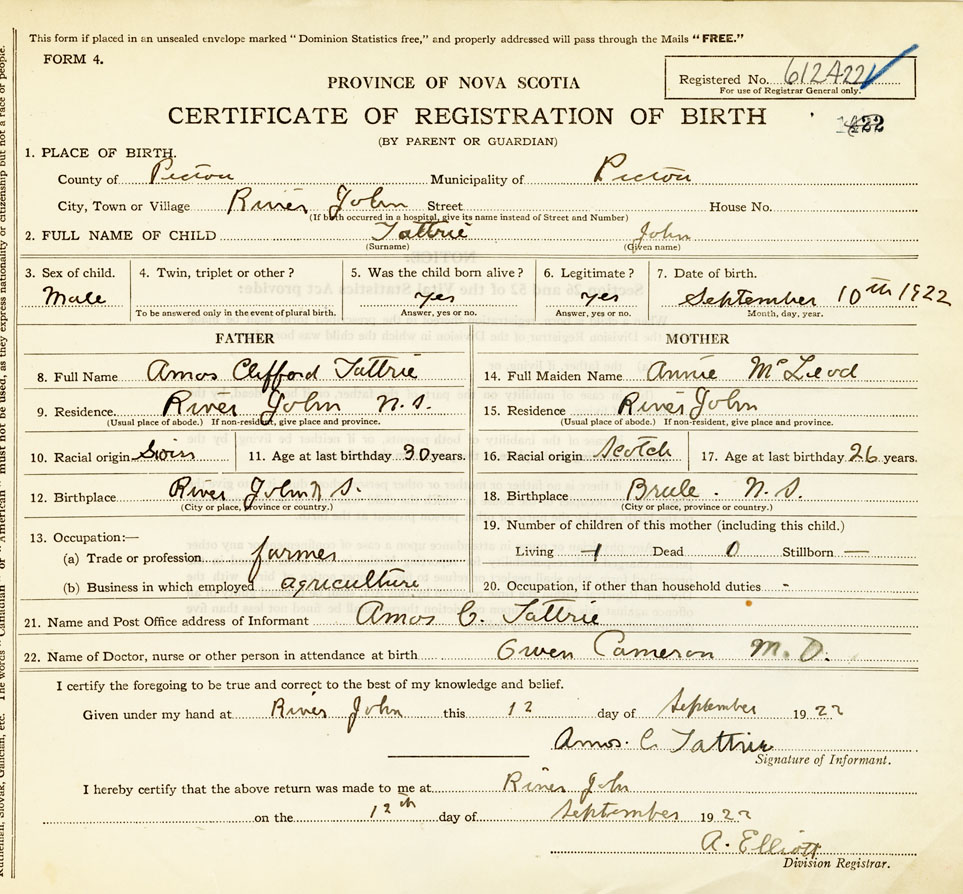 This form if placed in an unsealed envelope marked "Dominion Statistics free," and properly addressed will pass through the Mails "FREE."
FORM 4.
Registered No. 612A22
For use of Registrar General only.
PROVINCE OF NOVA SCOTIA
CERTIFICATE OF REGISTRATION OF BIRTH
22
(BY PARENT OR GUARDIAN)
1. PLACE OF BIRTH.
County of Pictou Municipality of Pictou
City, Town or Village River John Street House No.
(If birth occurred in a hospital, give its name instead of Street and Number)
2. FULL NAME OF CHILD Tattrie John
(Surname) (Given name)
3. Sex of child. 4. Twin, triplet or other? 5. Was the child born alive? 6. Legitimate? 7. Date of birth.
Male yes yes September 10th 1922
To be answered only in the event of plural birth. Answer, yes or no. Answer, yes or no. Month, day, year.
FATHER MOTHER
8. Full Name Amos Clifford Tattrie 14. Full Maiden Name Annie McLeod
9. Residence. River John N.S. 15. Residence River John
(Usual place of abode.) If non-resident, give place and province. (Usual place of abode.) If non-resident, give place and province.
10. Racial origin Swiss 11. Age at last birthday 30 years. 16. Racial origin Scotch 17. Age at last birthday 26 years.
12. Birthplace River John N S. 18. Birthplace Brule. N.S.
(City or place, province or country.) (City or place, province or country.)
13. Occupation:— 19. Number of children of this mother (including this child.)
(a) Trade or profession farmer Living 1 Dead 0 Stillborn —
(b) Business in which employed agriculture 20. Occupation, if other than household duties -
21. Name and Post Office address of Informant Amos C. Tattrie
22. Name of Doctor, nurse or other person in attendance at birth Owen Cameron M.D.
I certify the foregoing to be true and correct to the best of my knowledge and belief.
Given under my hand at River John this 12 day of September 1922
Amos. C Tattrie
Signature of Informant.
I hereby certify that the above return was made to me at River John
on the 12th day of September 1922
A. Elliott
Division Registrar.
must not be used, as they express nationality or citizenship but not a race or people.
Ruthenian, Slovak, Galician, etc. The words "Canadian" or "American"